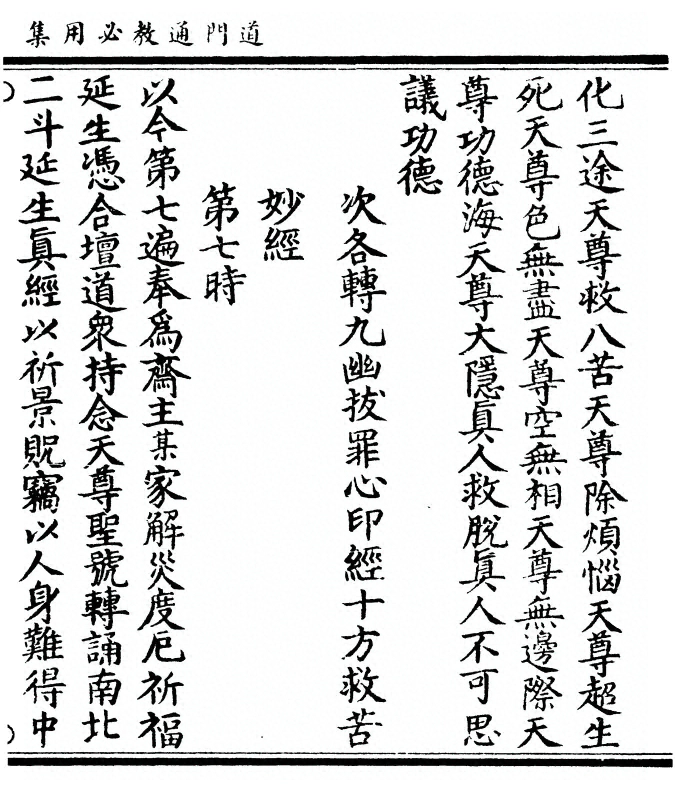 道門通教必用集
化三途天尊救八苦天尊除煩惱天尊超生
死天尊色無盡天尊空無相天尊無邊際天
尊功德海天尊大隱眞人救脫眞人不可思
議功德
次各轉九幽拔罪心印經十方救苦
妙經
第七時
以今第七遍奉爲齋主某家解災度厄祈福
延生憑合壇道衆持念天尊聖號轉誦南北
二斗延生眞經以祈景貺竊以人身難得中